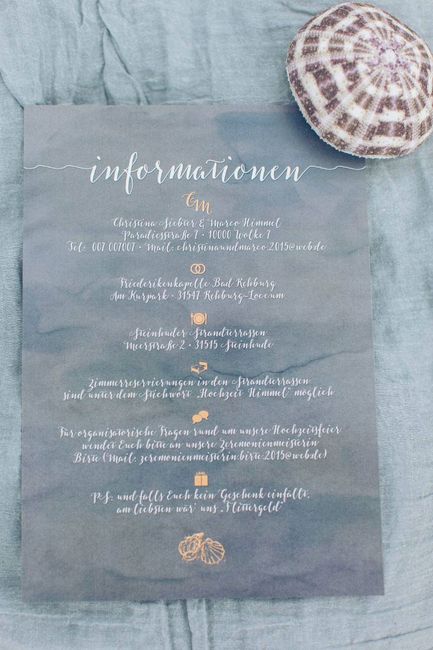 informationen
CM
Christina Siebier & Marco Himmel
Paradiesstraße 7 • 10000 Wolke 7
Tel: 007 007007 • Mail: christinaundmarco.2015@web.de
Friederikenkapelle Bad Rehburg
Am Kurpark • 31547 Rehburg-Loccum
Steinhuder Strandterrassen
Meerstraße 2 • 31515 Steinhude
Zimmerreservierungen in den Strandterrassen
sind unter dem Stichwort "Hochzeit Himmel" möglich
Für organisatorische Fragen rund um unsere Hochzeitsfeier
wendet Euch bitte an unsere Zeremonienmeisterin
Birte (Mail: zeremonienmeisterin.birte.2015@web.de)
P.S. und falls Euch kein Geschenk einfällt,
am liebsten wär' uns „Flittergeld"